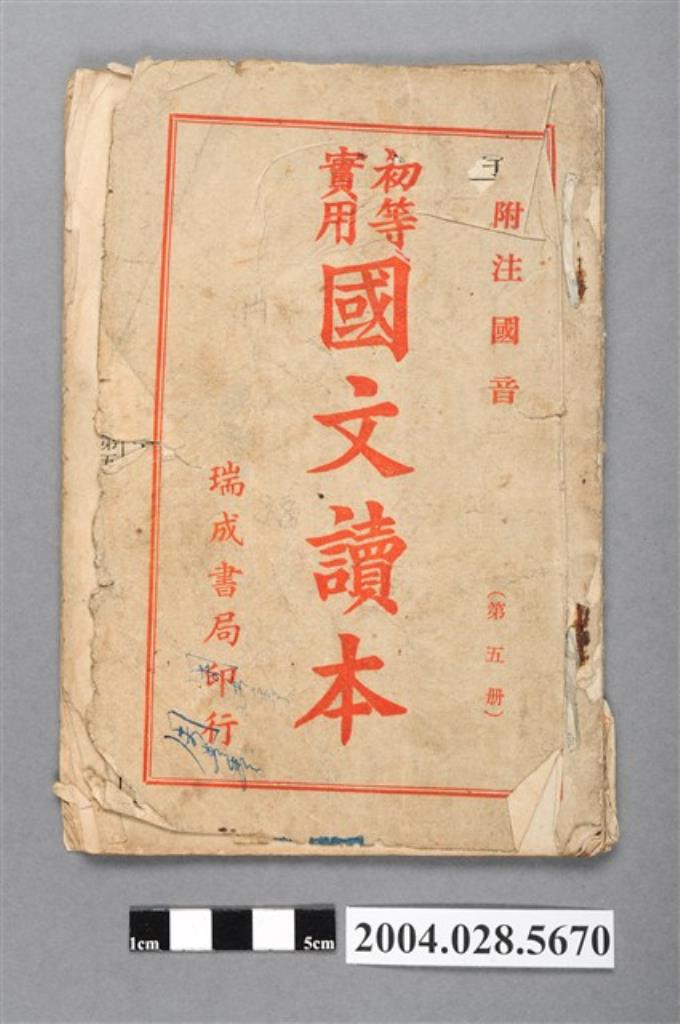 附注國音
（第五册）
初等
實用
國文讀本
瑞成書局印行
第五
1cm
5cm
2004.028.5670